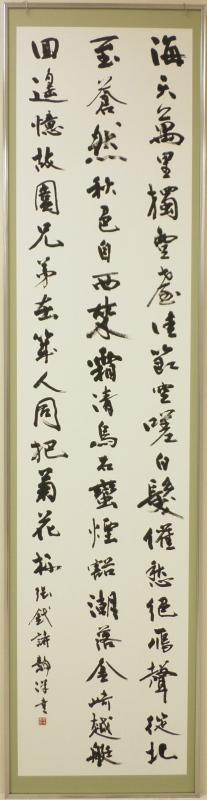 海天萬里獨登臺佳節空嗟白髮催愁絕雁聲從北
至蒼然秋色自西來霜清烏石蠻煙豁潮落金崎越艇
回遙憶故園兄弟在幾人同把菊花杯 張鉞詩 書